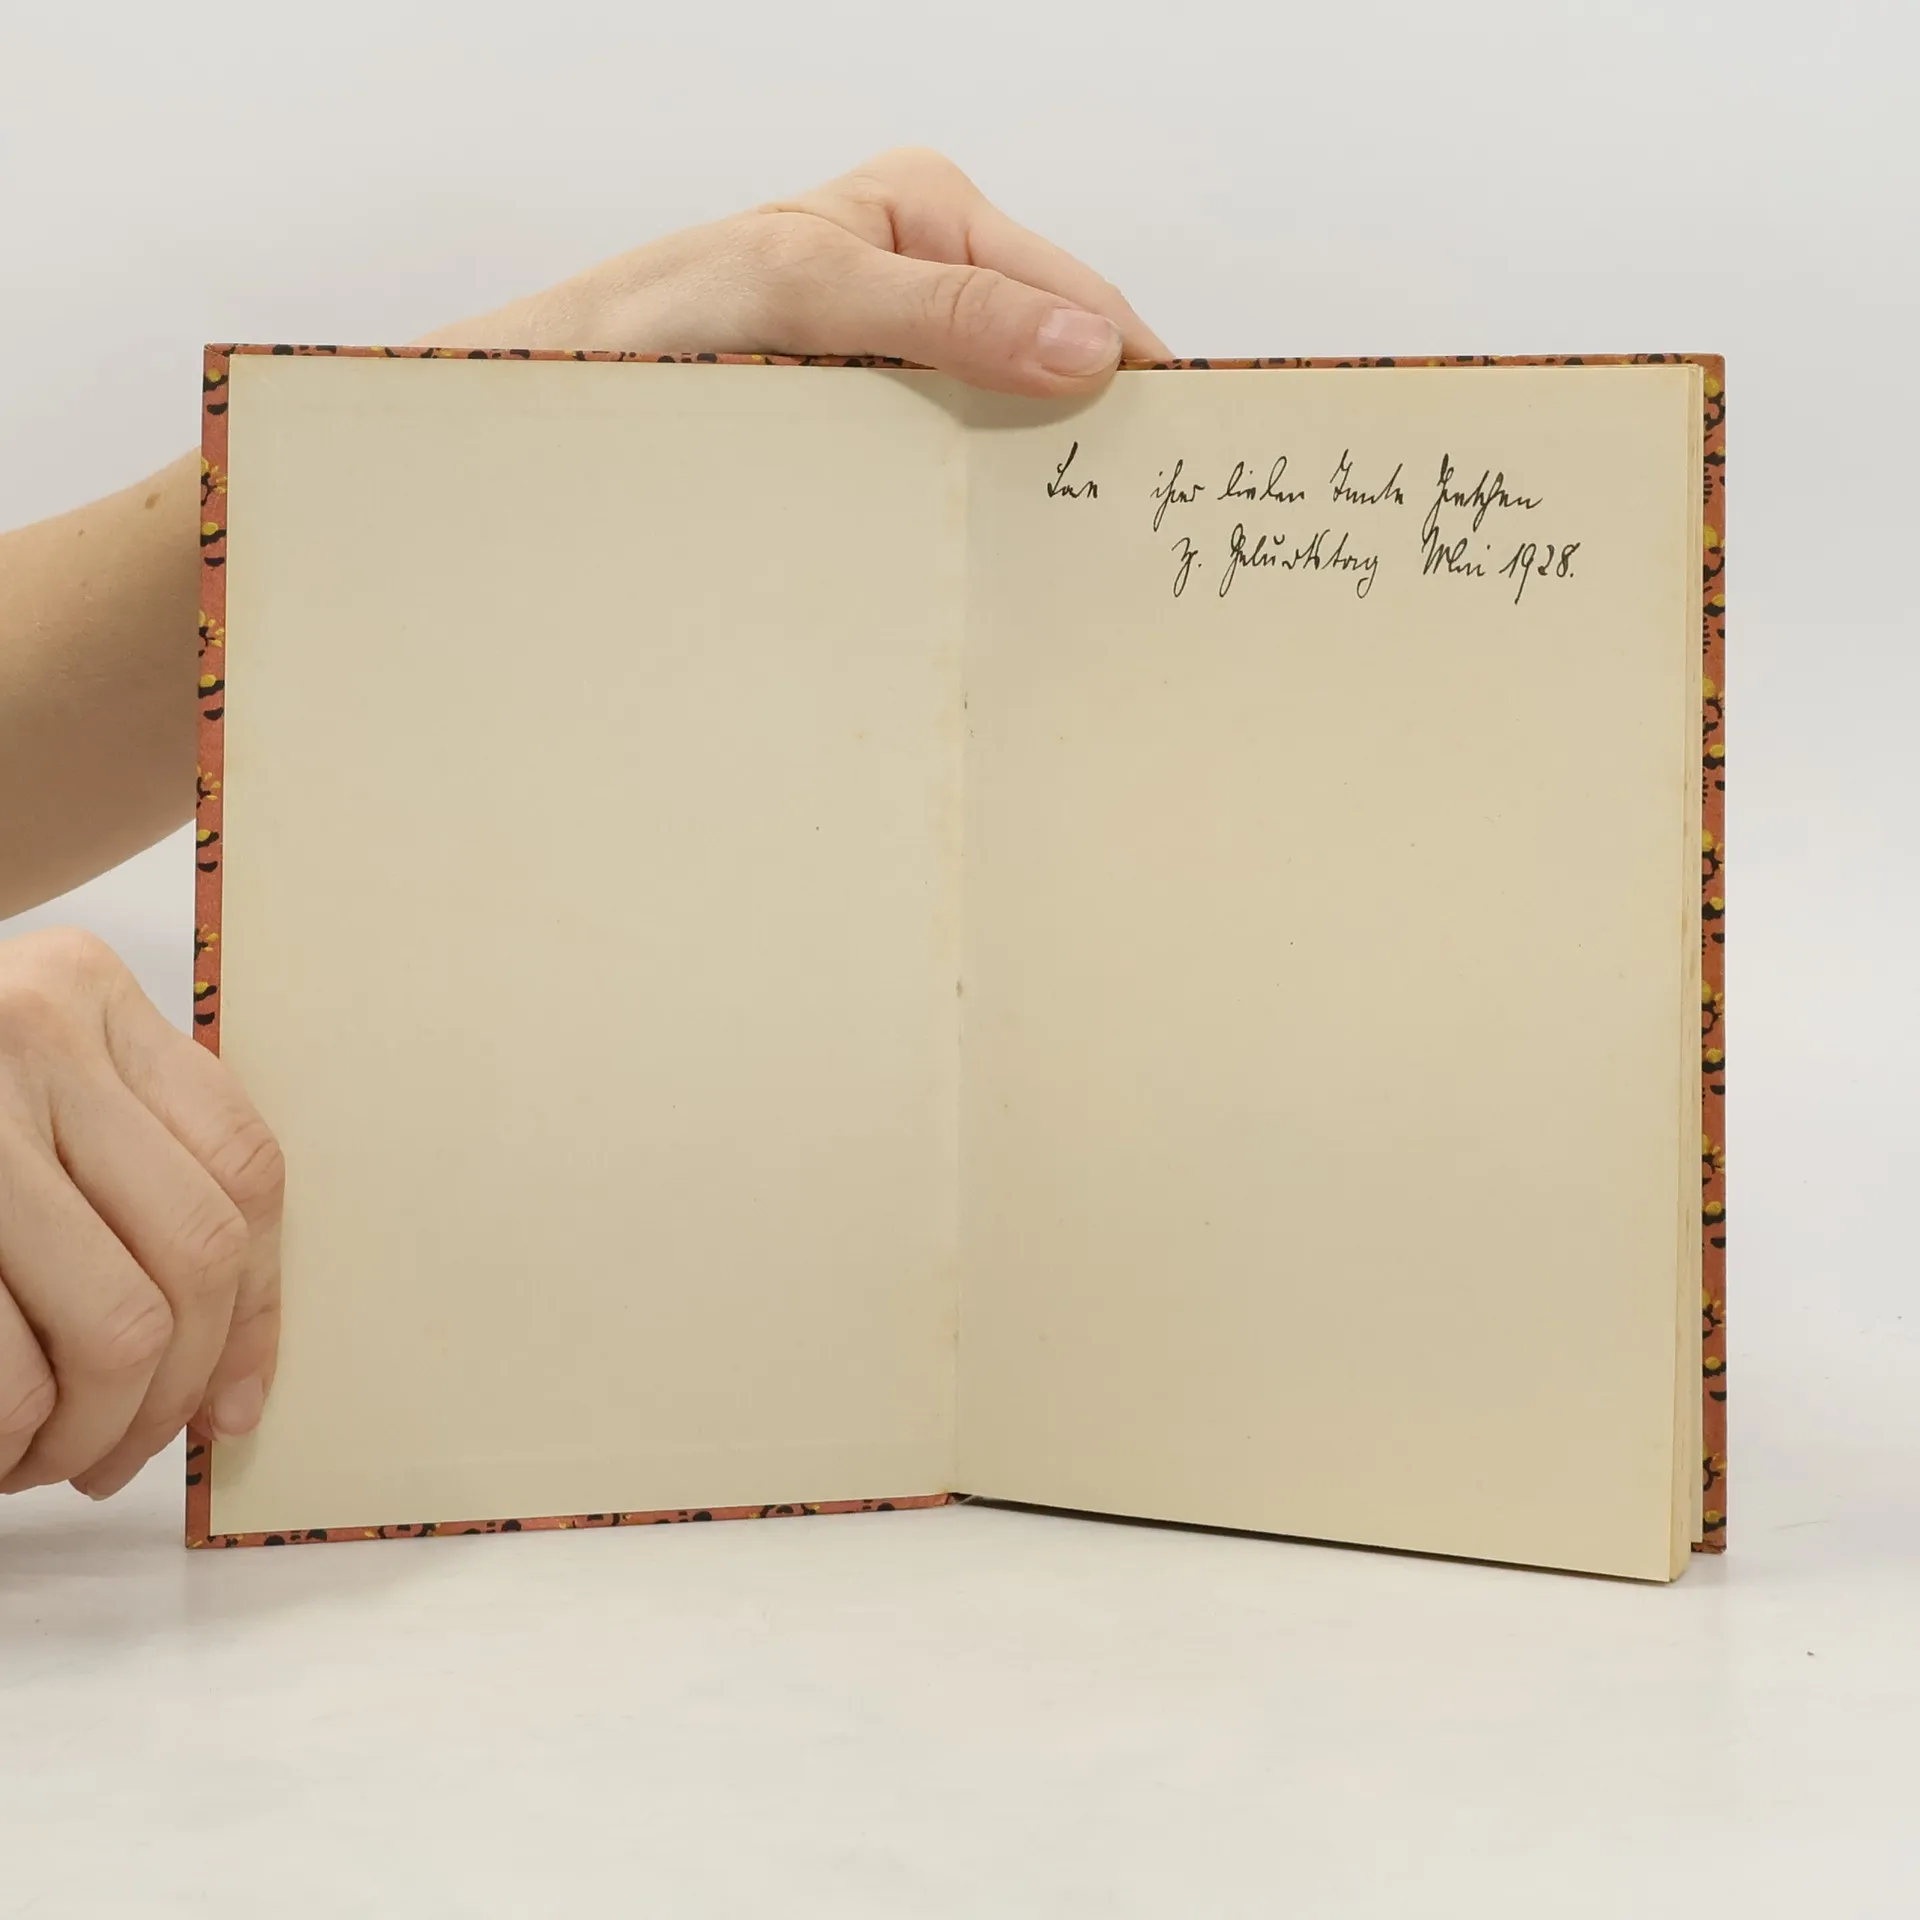 ihrer lieben Tante Gretchen
z. Geburtstag Mai 1928.